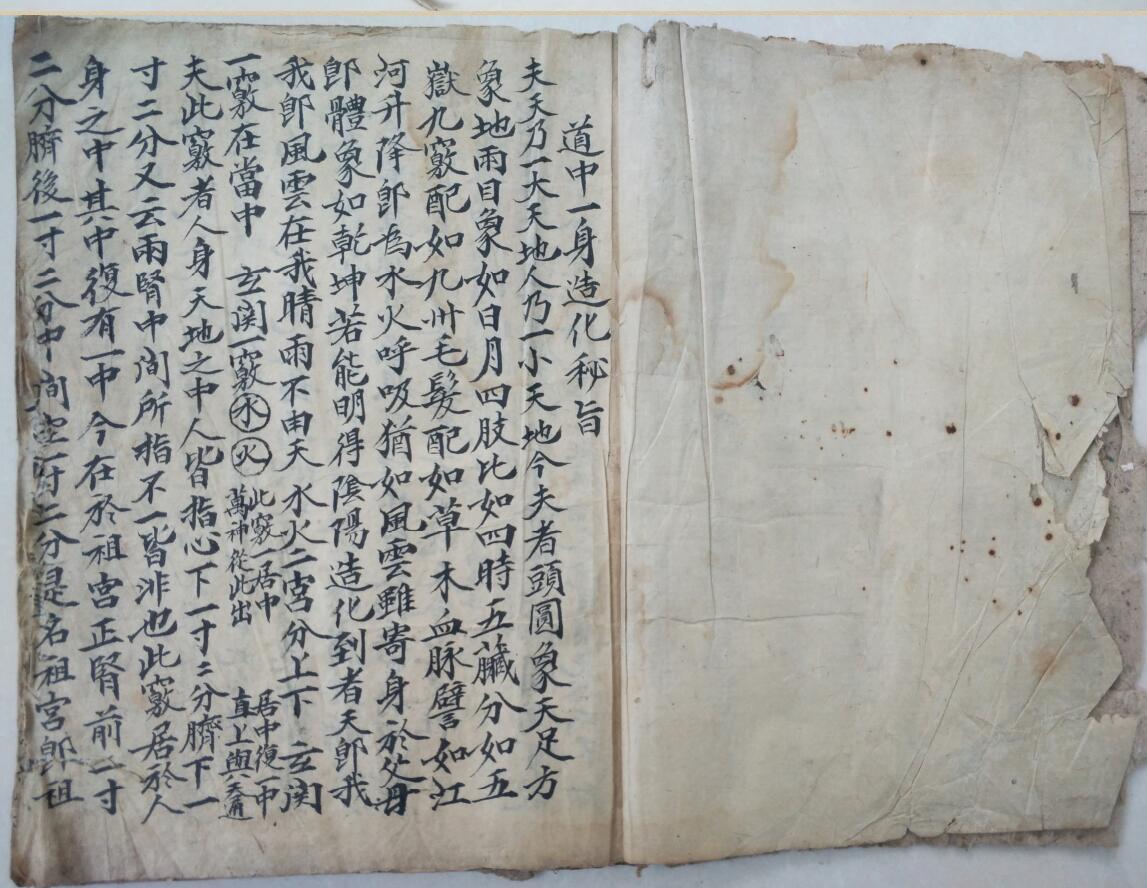 道中一身造化秘旨
夫天乃一大天地人乃一小天地今夫者頭圓象天足方
象地兩目象如日月四肢比如四時五臟分如五
嶽九竅配如九州毛髮配如草木血脉譬如江
河升降即為水火呼吸猶如風雲雖寄身於父母
即體象如乾坤若能明得陰陽造化到者天即我
我即風雲在我晴雨不由天 水火二宮分上下 玄関
一竅在當中 玄関一竅 水 火 此竅一居中 萬神從此出 居中復一中 直上與天通
夫此竅者人身天地之中人皆指心下一寸二分臍下一
寸二分又云兩腎中间所指不一皆非也此竅居於人
身之中其中復有一中今在於祖宮正腎前一寸
二分臍後一寸二分中间空一寸二分是名祖宮即祖